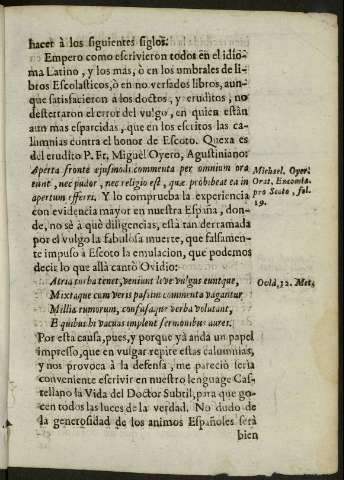 hacer à los siguientes siglos.
Empero como escrivieron todos en el idio-
ma Latino, y los màs, ò en los umbrales de li-
bros Escolasticos, ò en no versados libros, aun-
que satisfacieron a los doctos, y eruditos, no
desterraron el error del vulgo, en quien estàn
aun mas esparcidas, que en los escritos las ca-
lumnias contra el honor de Escoto. Quexa es
del erudito P. Fr. Miguel Oyero, Agustiniano:
Aperta fronte ejusmodi commenta per omnium ora
eunt, nec pudor, nec religio est, quæ prohibeat ea in
apertum efferri. Y lo comprueba la experiencia
con evidencia mayor en nuestra España, don-
de, no sè à què diligencias, està tan derramada
por el vulgo la fabulosa muerte, que falsamen-
te impuso à Escoto la emulacion, que podemos
decir lo que allà cantò Ovidio:
Atria turba tenet, veniunt leve vulgus euntque,
Mixtaque cum veris passim commenta vagantur
Millia rumorum, confusaque verba volutant,
E quibus hi vacuas implent sermonibus aures.
Por esta causa, pues, y porque yà anda un papel
impresso, que en vulgar repite estas calumnias,
y nos provoca à la defensa, me pareciò seria
conveniente escrivir en nuestro lenguage Cas-
tellano la Vida del Doctor Subtil, para que go-
cen todos las luces de la verdad. No dudo de
la generosidad de los animos Españoles serà
bien
Michael. Oyer.
Orat. Encomia.
pro Scoto, fol.
19.
Ovid. 12. Met.